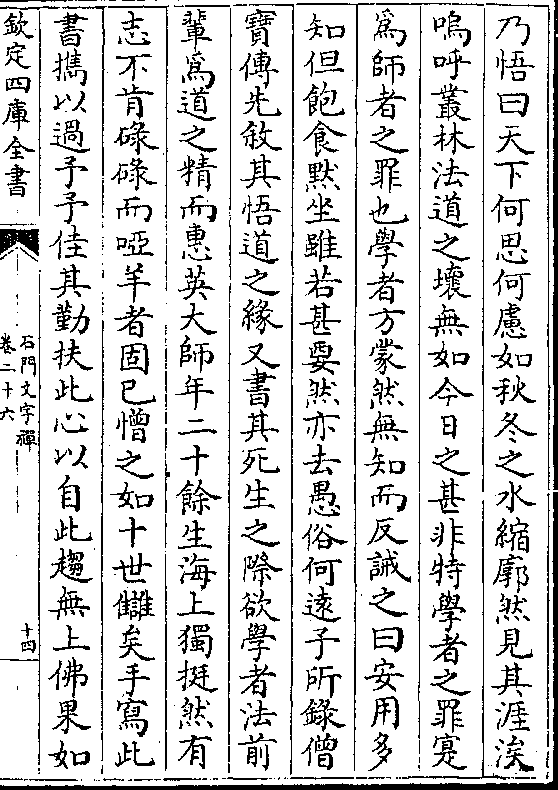 乃悟曰天下何思何慮如秋冬之水縮廓然見其涯涘
嗚呼叢林法道之壞無如今日之甚非特學者之罪寔
爲師者之罪也學者方蒙然無知而反誡之曰安用多
知但飽食默坐雖若甚要然亦去愚俗何遠予所錄僧
寶傳先敘其悟道之緣又書其死生之際欲學者法前
輩爲道之精而惠英大師年二十餘生海上獨挺然有
志不肯碌碌而啞羊者固已憎之如十世讎矣手寫此
書攜以過予予佳其勤扶此心以自此趨無上佛果如
欽定四庫全書
石門文字禪
卷二十六
十四